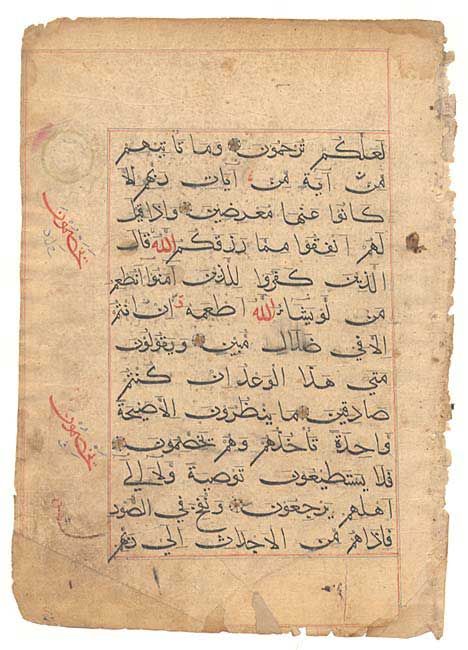 لعلكم ترحمون وما تاتيهم
من آية من آيات ربهم الا
كانوا عنها معرضين واذا قيل
لهم انفقوا مما رزقكم الله قال
الذين كفروا للذين آمنوا انطعم
من لو يشاء الله اطعمه ان انتم
الا في ضلال مبين ويقولون
متى هذا الوعد ان كنتم
صادقين ما ينظرون الا صيحة
واحدة تأخذهم وهم يخصمون
فلا يستطيعون توصية ولا الى
اهلهم يرجعون ونفخ في الصور
فاذا هم من الاجداث الى ربهم
يخصمون
يخصمون